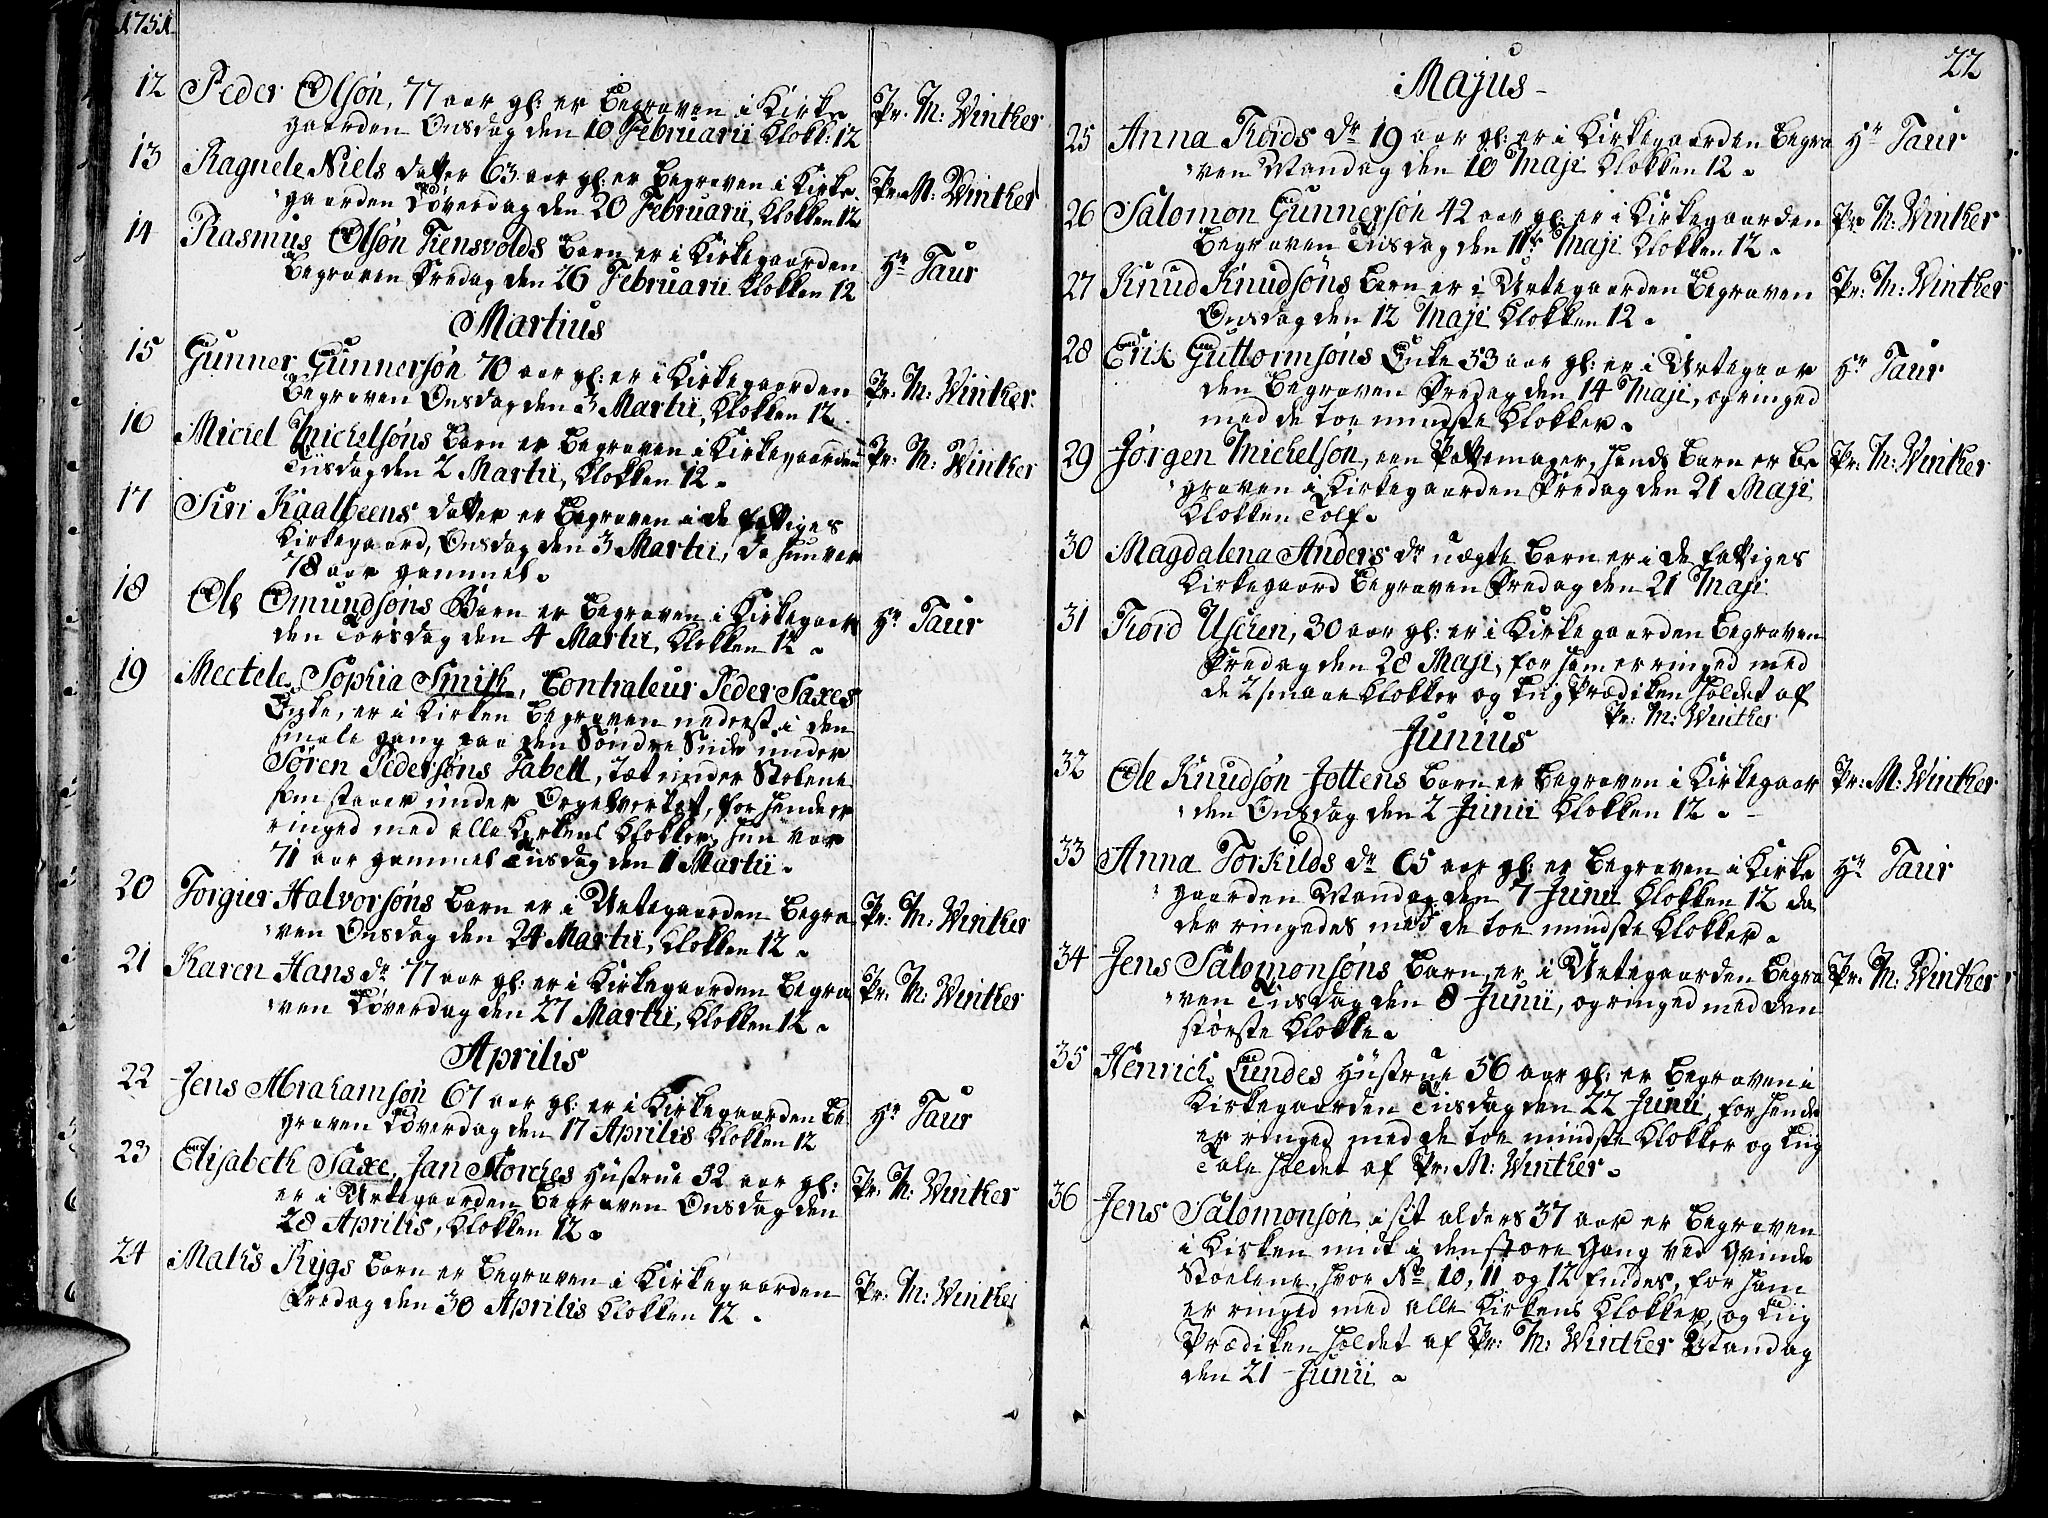 1751
12 Peder Olsøn, 77 aar gl: er Begraven i Kirke
gaarden Onsdag den 10 Februarii Klokk: 12
Pr. M: Winther
13 Ragnele Niels datter 63 aar gl: er Begraven i Kirke
gaarden Løverdag den 20 Februarii, Klokken 12
Pr. M: Winther
14 Rasmus Olsøn Tiensvolds Barn er i Kirkegaarden
Begraven Fredag den 26 Februarii Klokken 12
Hr Taur
Martius
15 Gunner Gunnersøn 70 aar gl: er i Kirkegaarden
Begraven Onsdag den 3 Martii, Klokken 12
Pr: M: Winther
16 Miciel Michelsøns Barn er Begraven i Kirkegaarden
Tiisdag den 2 Martii, Klokken 12.
Pr: M: Winther
17 Siri Kaalbeens datter er Begraven i de fattiges
Kirkegaard, Onsdag den 3 Martii, da hun var
78 aar gammel.
18 Ole Omundsøns Barn er Begraven i Kirkegaar
den Torsdag den 4 Martii, Klokken 12.
Hr Taur
19 Mectele Sophia Smith, Contraleur Peder Saxes
Enke, er i Kirken Begraven nederst i den
smale gang paa den Søndre Side under
Søren Pedersøns Tabell, tæt under Stolene
som staaer under Orgelverket, for hende er
ringed med alle Kirkens Klokker, hun var
71 aar gammel Tiisdag den 1 Martii.
20 Torgier Halvorsøns Barn er i Urtegaarden Begra
ven Onsdag den 24 Martii, Klokken 12.
Pr: M: Winther
21 Karen Hans dr 77 aar gl: er i Kirkegaarden Begra
ven Løverdag den 27 Martii, Klokken 12.
Pr: M: Winther
Aprilis
22 Jens Abrahamsøn 67 aar gl: er i Kirkegaarden Be
graven Løverdag den 17 Aprilis Klokken 12
Hr Taur
23 Elisabeth Saxe, Jan Storches Hustrue 52 aar gl:
er i Urtegaarden Begraven Onsdag den
28 Aprilis, Klokken 12.
Pr: M: Winther
24 Mathis Rygs Barn er Begraven i Kirkegaarden
Fredag den 30 Aprilis Klokken 12.
Pr: M: Winther
22
Majus
25 Anna Tords dr 19 aar gl: er i Kirkegaarden Begra
ven Mandag den 10 Maji Klokken 12.
Hr Taur
26 Salomon Gunnersøn 42 aar gl: er i Kirkegaarden
Begraven Tiisdag den 11te Maji Klokken 12.
Pr: M: Winther
27 Knud Knudsøns Barn er i Urtegaarden Begraven
Onsdag den 12 Maji Klokken 12.
Pr: M: Winther
28 Erik Guttormsøns Enke 53 aar gl: er i Urtegaar
den Begraven Fredag den 14 Maji, og ringed
med de toe mindste Klokker.
Hr Taur
29 Jørgen Michelsøn, een Pottemager, hands Barn er Be
graven i Kirkegaarden Fredag den 21 Maji
Klokken Tolf.
Pr: M: Winther
30 Magdalena Anders dr uægte Barn er i de fattiges
Kirkegaard Begraven Fredag den 21 Maji
31 Tord Uschen, 30 aar gl: er i Kirkegaarden Begraven
Fredag den 28 Maji, for ham er ringed med
de 2 smaae Klokker og Liig Prædiken holdet af
Pr: M: Winther
Junius
32 Ole Knudsøn Jottens Barn er Begraven i Kirkegaar
den Onsdag den 2 Junii Klokken 12.
Pr: M: Winther
33 Anna Torkilds dr 65 aar gl: er Begraven i Kirke
gaarden Mandag den 7 Junii Klokken 12 da
der ringedes med de toe mindste Klokker.
Hr Taur
34 Jens Salomonsøns Barn, er i Urtegaarden Begra
ven Tiisdag den 8 Junii, og ringed med den
største Klokke.
Pr. M: Winther
35 Henrich Lundes Hustrue 56 aar gl: er Begraven i
Kirkegaarden Tiisdag den 22 Junii, for hende
er ringed med de toe mindste Klokker og Liig
Tale holdet af Pr: M: Winther.
36 Jens Salomonsøn i sit alders 37 aar er Begraven
i Kirken midt i den store Gang ved Qvinde
Stoelene, hvor No 10, 11 og 12 findes, for ham
er ringed med alle Kirkens Klokker, og Liig
Prædiken holdet af Pr: M: Winther Mandag
den 21 Junii.